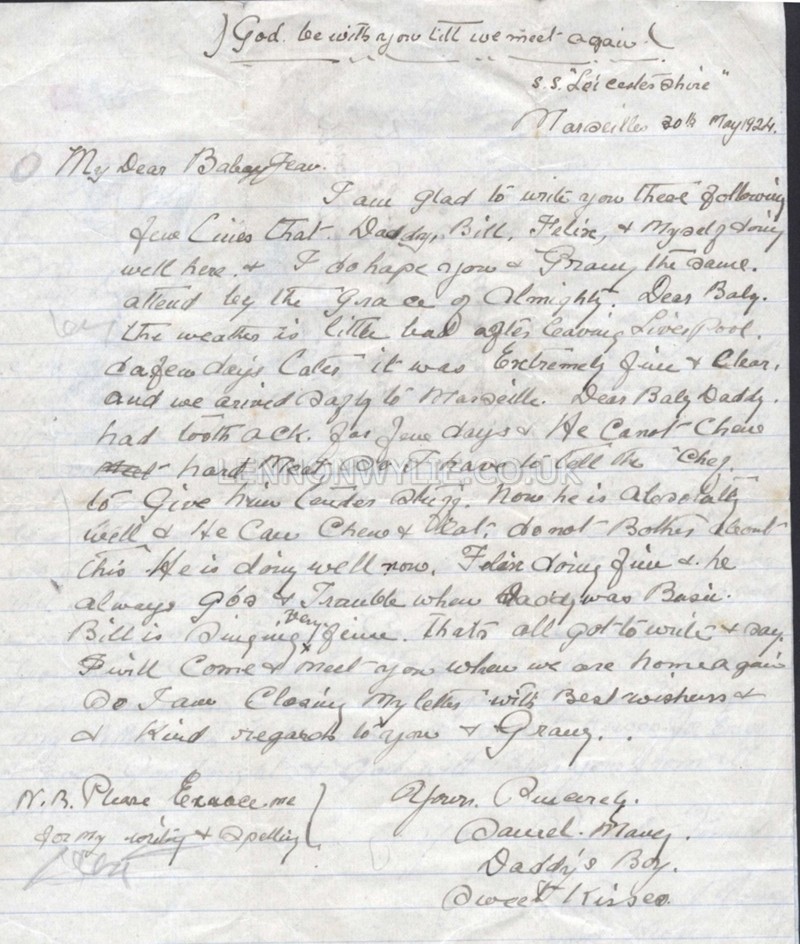 ) God. be with you till we meet again. (
S.S. "Leicestershire"
Marseilles 30th May 1924.
My Dear Baby Jean.
I am glad to write you these following
few Lines that. Daddy, Bill, Felix, & Myself doing
well here. & I do hope you & Granny the same.
attend by the Grace of Almighty. Dear Baby.
the weather is little bad after leaving Liverpool.
a few days Later it was Extremely fine & Clear.
and we arived safly to Marseille. Dear Baby Daddy.
had tooth ack. for few days & He Canot Chew
hard Meat so I have to tell the "Chef.
to Give him tender stuff. Now he is absolutly
well & He Can Chew & that. do not Bother about
this He is doing well now. Felix doing fine & he
always & Trouble when Daddy was Busie.
Bill is Singing very fine. thats all got to write & say.
I will Come & meet you when we are home again
So I am Closing My letter with Best wishers &
& Kind regards to you & Granny. .
N.B. Please Excuse me
for my writing & Spelling
Yours. Sincerely.
Daddy's Boy.
Sweet Kisses.
LENNONWYLIE.CO.UK